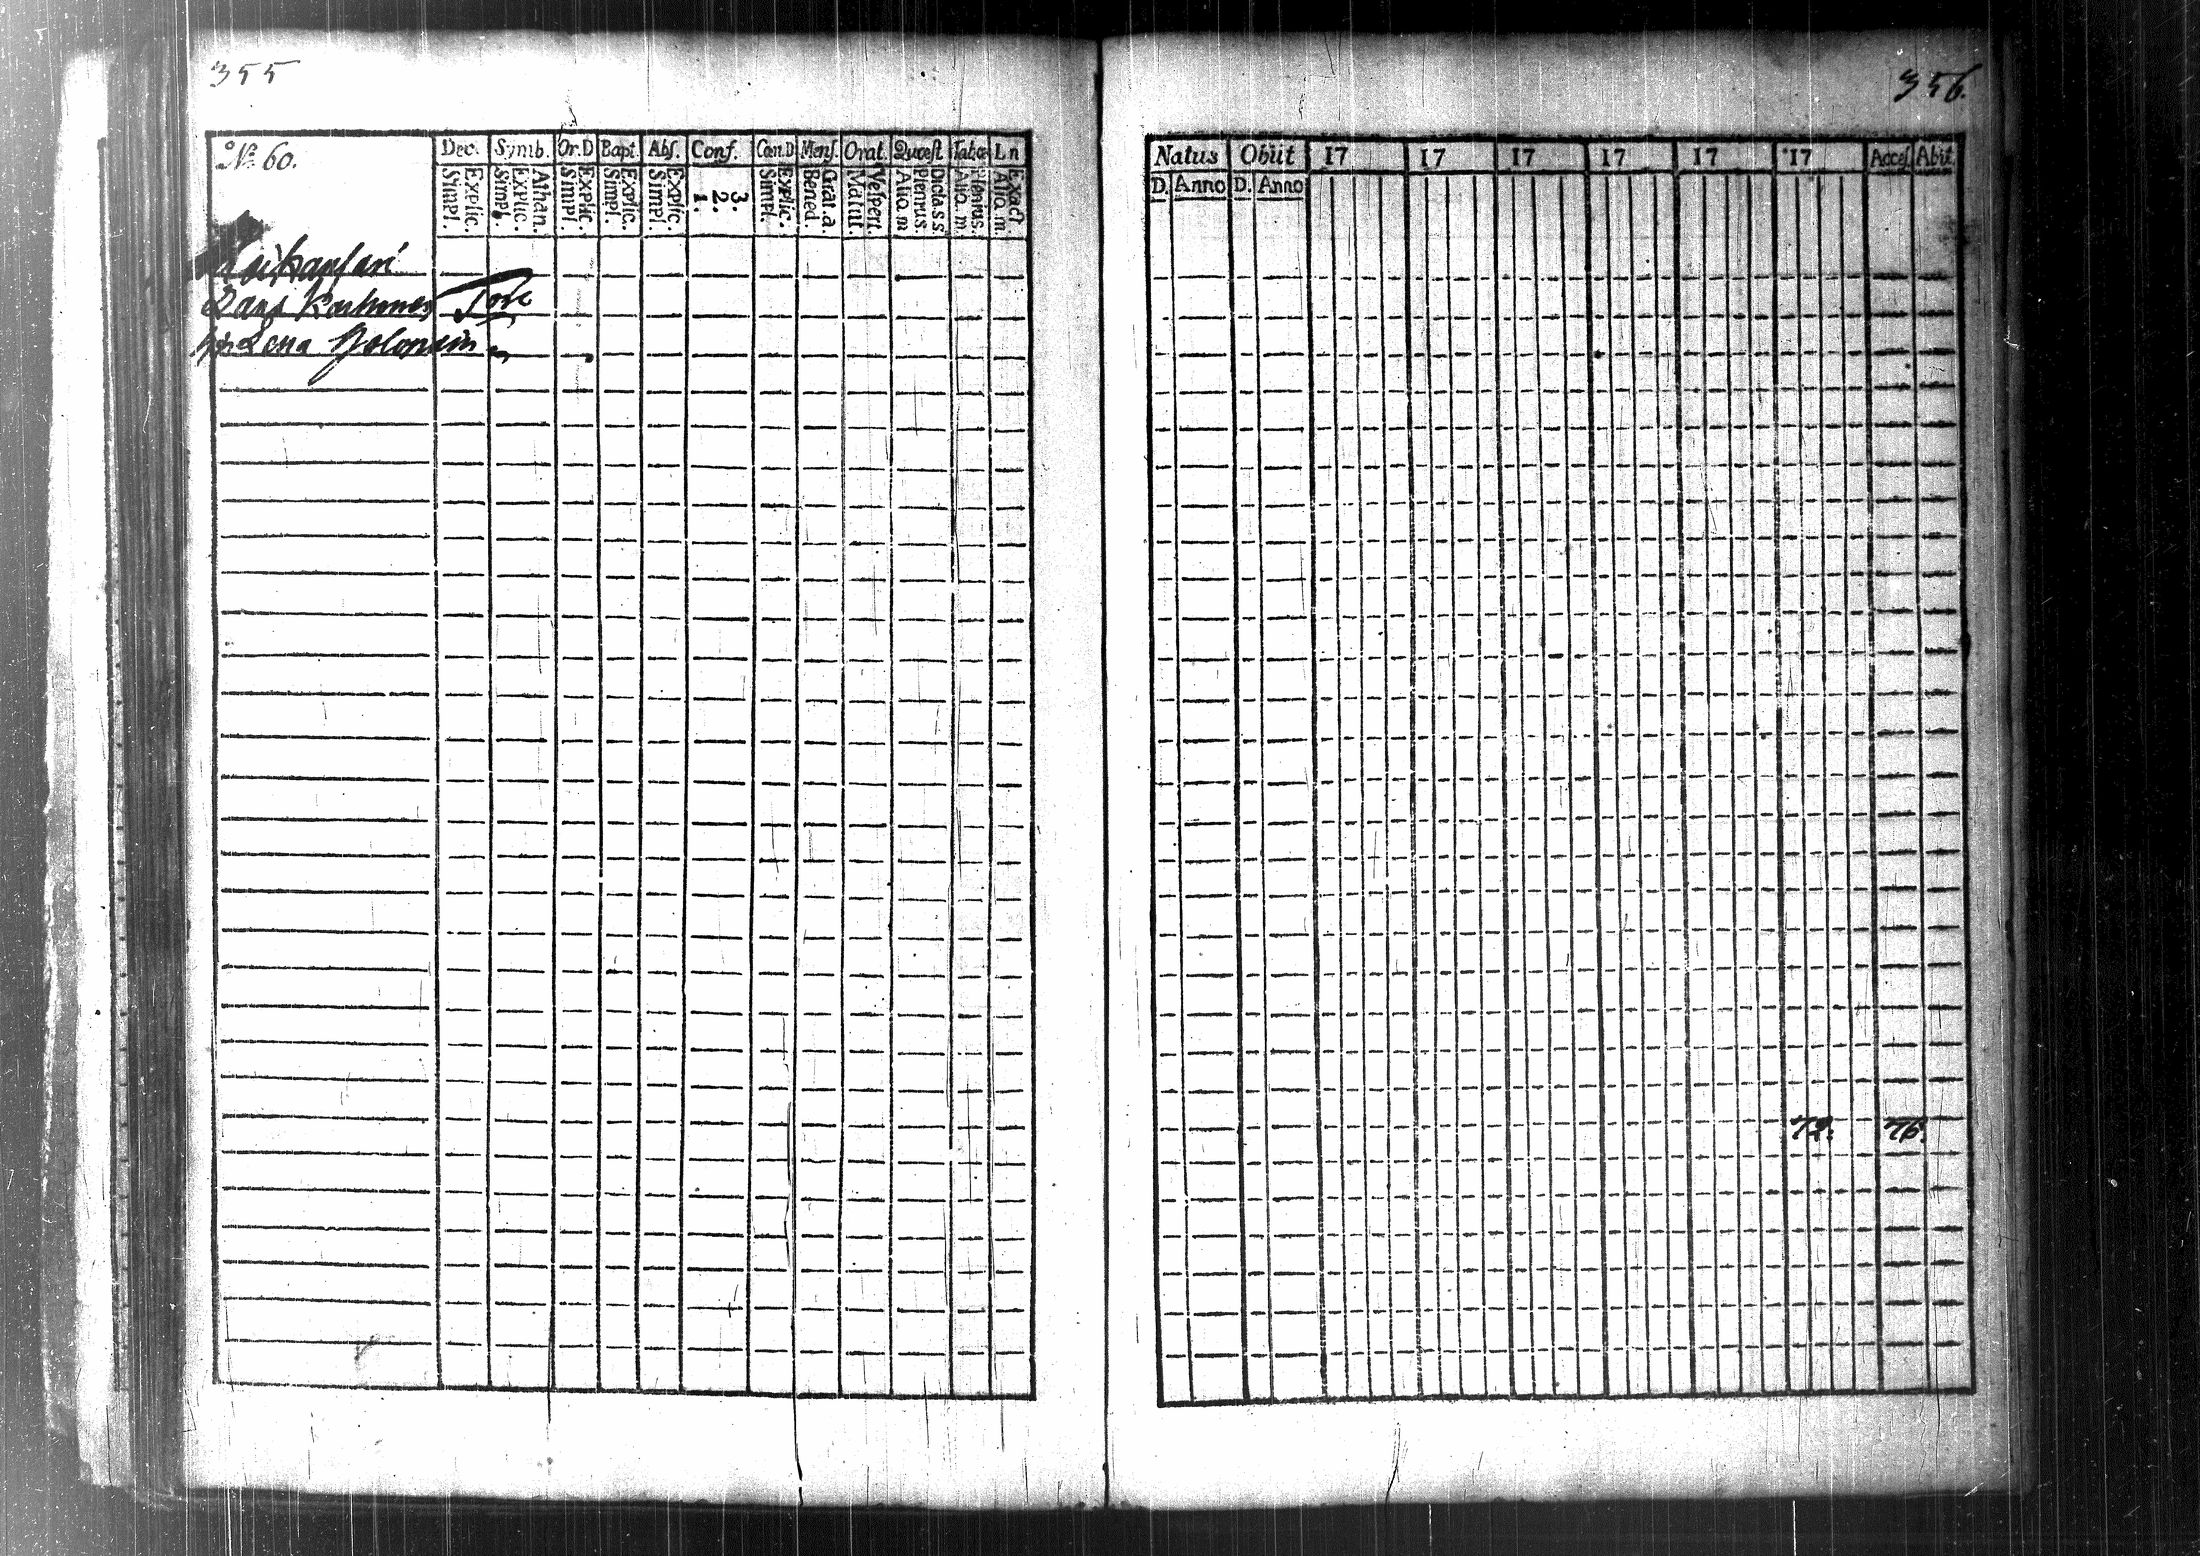 355
N:o 60.
Dec. Symb. Or.D Bapt. Abs. Conf. Cœn.D Mens. Orat. Quæst Tabœ Ln
Simpl. Explic. Simpl. Explic. Athan. Simpl. Explic. Simpl. Explic. Simpl. Explic. 1. 2. 3. Simpl. Explic. Bened. Grat. a. Matut. Vespert. Alio. m Plenius Dicta s s Alio. m. Plenius. Alio. m. Exact
Lena
356.
Natus Obiit 17 17 17 17 17 17 Acces. Abit.
D. Anno D. Anno
72. 76.